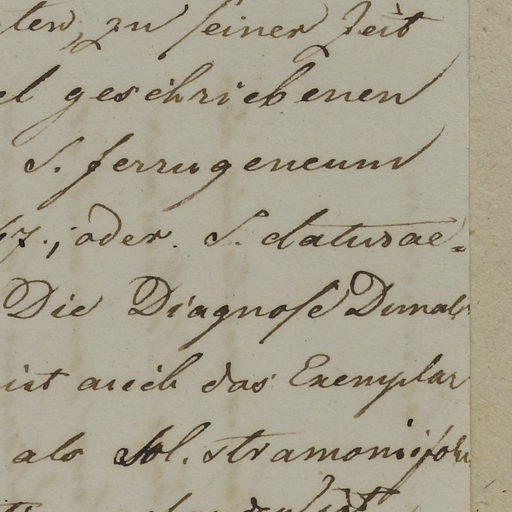 ten, zu seiner Zeit
el geschriebenen
S. ferrugeneum
67.; oder. S. daturae-
Die Diagnose Dunals
ist auch das Exemplar
als Sol. stramoniifoli